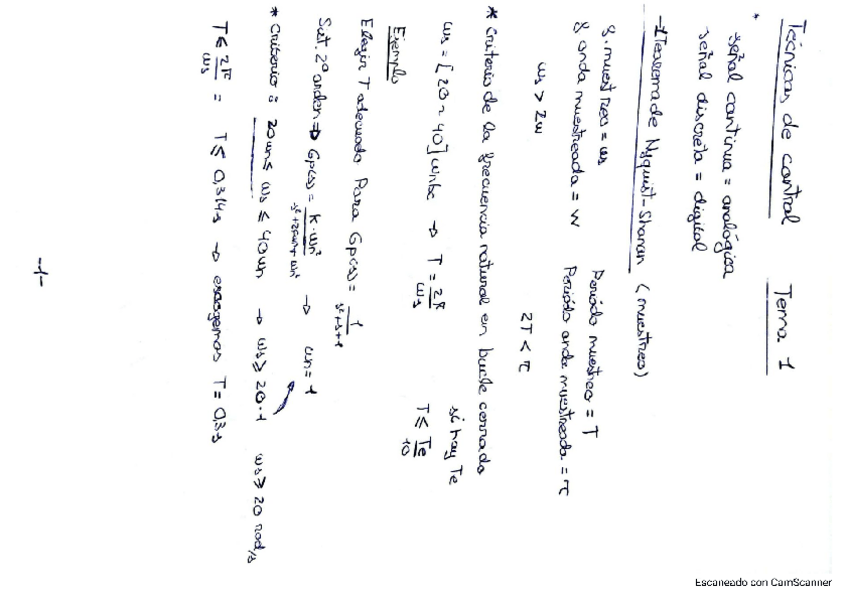 Técnicas de control Tema 1
señal continua = analógica
señal discreta = digital
-1Teorema de Nyquist-Shanan (muestreo)
f. muestreo = ws Periodo muestreo = T
f onda muestreada = W Periodo onda muestreada = τ
ws > 2w 2T < τ
* criterio de la frecuencia natural en bucle cerrado
ws = [20 ~ 40] wnbc → T = 2π/ws si hay Te T ≤ Te/10
Ejemplo
Elegir T adecuado Para Gp(s) = 1/s²+s+1
Sist. 2º orden ⇒ Gp(s) = k·wn²/s²+2ξwns+wn² → wn = 1
* Criterio: 20wn ≤ ws ≤ 40wn → ws ≥ 20·1 ws ≥ 20 rad/s
T ≤ 2π/ws = T ≤ 0,314s → escogemos T = 0,3s
-1-
Escaneado con CamScanner